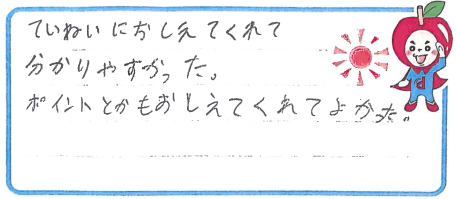 ていねいにおしえてくれて
分かりやすかった。
ポイントとかもおしえてくれてよかった。